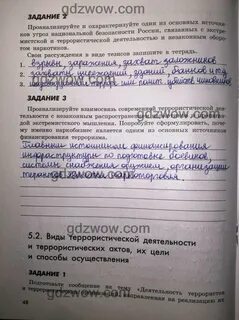 gdzwow.com
ЗАДАНИЕ 2
Проанализируйте и охарактеризуйте один из основных источни-
ков угроз национальной безопасности России, связанных с экстре-
мистской и террористической деятельностью и незаконным оборо-
том наркотиков.
Свои рассуждения в виде тезисов запишите в тетрадь.
1. Взрывы, заражения, захват заложников
2. захваты учреждений, зданий, банков и тд
3.
ЗАДАНИЕ 3
Проанализируйте взаимосвязь современной террористической дея-
тельности с незаконным распространением
дей экстремистского мышления. Попробуйте сформулировать, поче-
му именно наркобизнес является одним из основных источников
финансирования терроризма.
Главным источником финансирования
инфраструктуры по подготовке боевиков,
системы снабжения оружием, организации
терактов
gdzwow.com
5.2. Виды террористической деятельности
и террористических актов, их цели
и способы осуществления
ЗАДАНИЕ 1
Подготовьте сообщение на тему «Деятельность террористов
и направленная на реализацию их
48
gdzwow.com